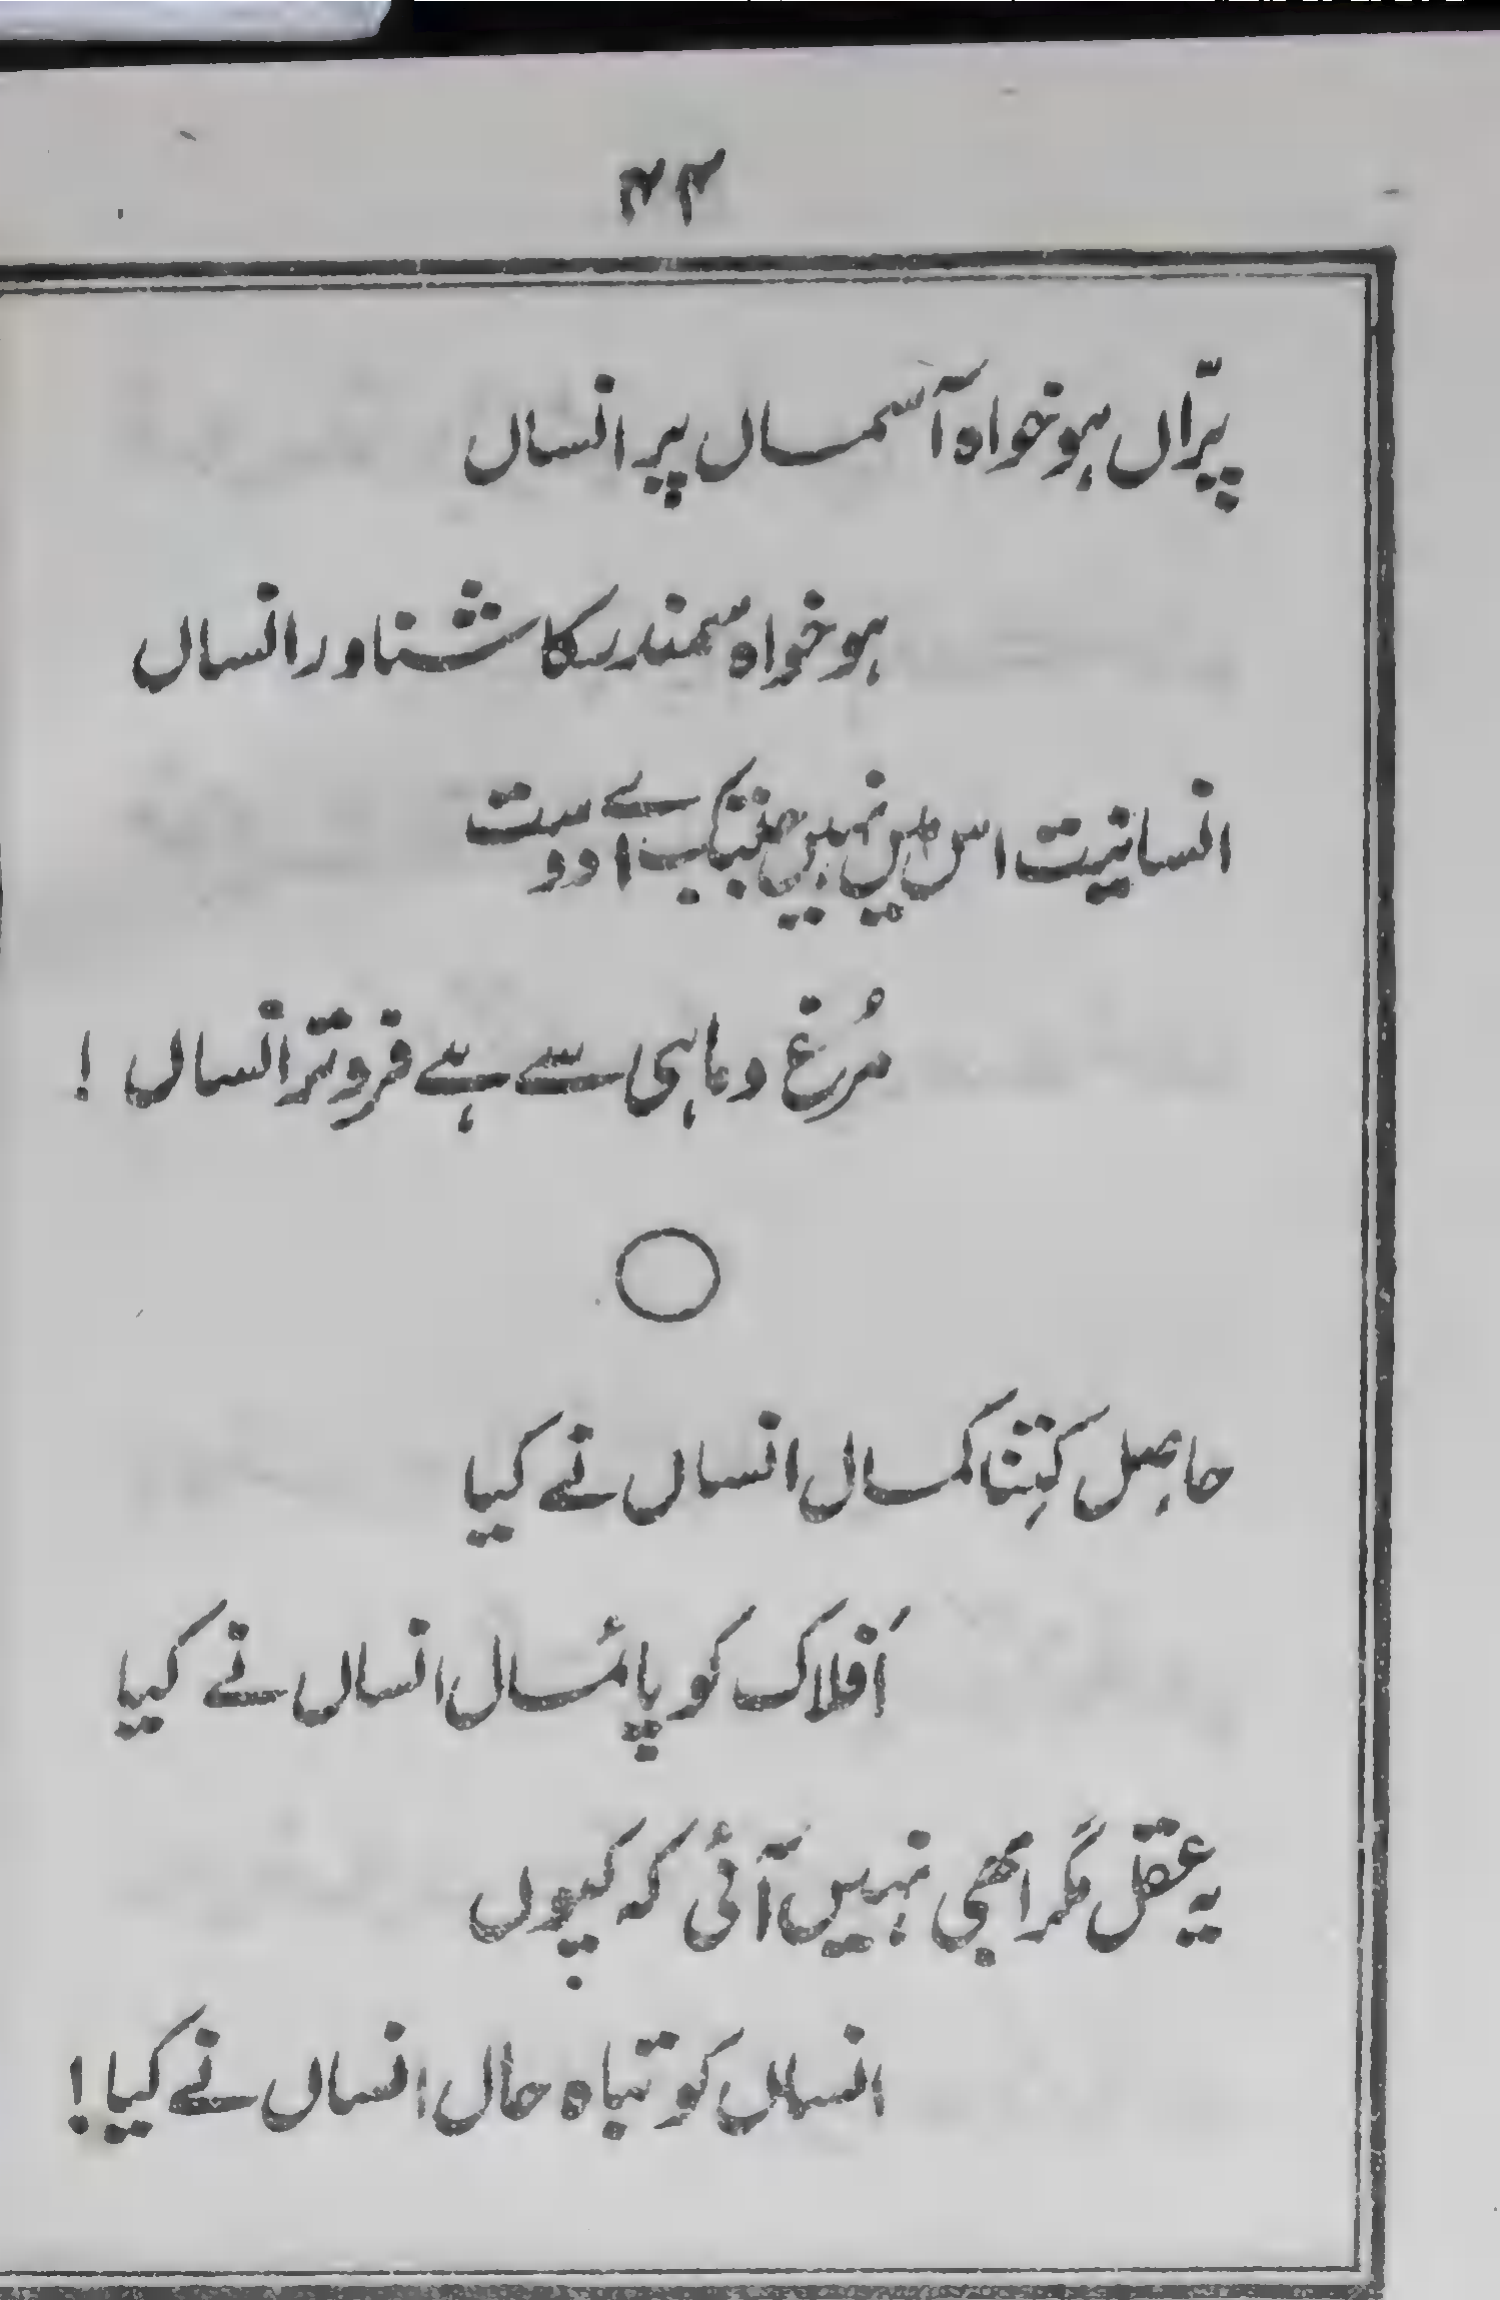 ۴۴
پرّاں ہو خواہ آسماں پر انساں
ہو خواہ سمندر کا شناور انساں
انسانیت اس میں نہیں جبتک اے دوست
مُرغ و ماہی سے ہے فروتر انساں !
حاصِل کِتنا کمال انساں نے کیا
اَفلاک کو پائمال انساں نے کیا
یہ عقل مگر ابھی نہیں آئی کہ کیوں
انساں کو تباہ حال انساں نے کیا !